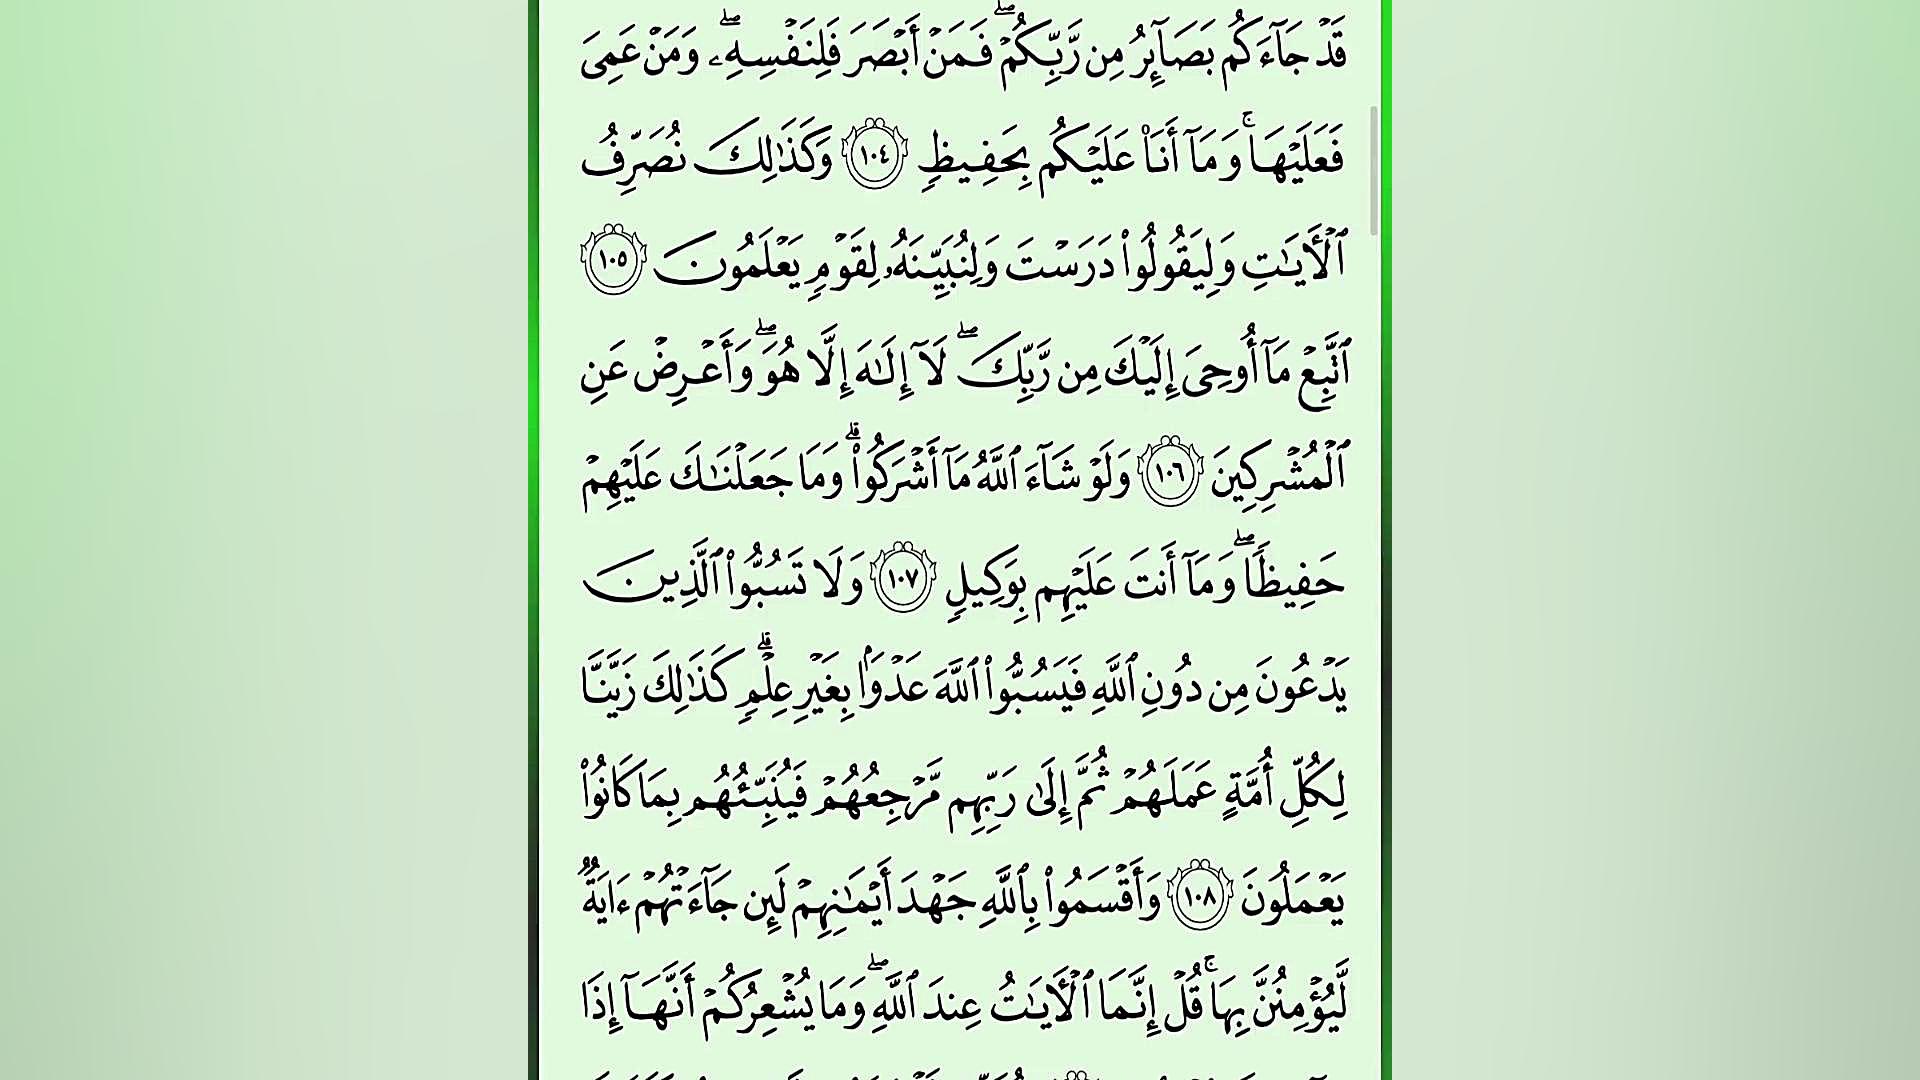 قَدْ جَآءَكُم بَصَآئِرُ مِن رَّبِّكُمْ ۖ فَمَنْ أَبْصَرَ فَلِنَفْسِهِۦ ۖ وَمَنْ عَمِىَ
فَعَلَيْهَا ۚ وَمَآ أَنَا۠ عَلَيْكُم بِحَفِيظٍ ١٠٤ وَكَذَٰلِكَ نُصَرِّفُ
ٱلْأَيَـٰتِ وَلِيَقُولُوا۟ دَرَسْتَ وَلِنُبَيِّنَهُۥ لِقَوْمٍ يَعْلَمُونَ ١٠٥
ٱتَّبِعْ مَآ أُوحِىَ إِلَيْكَ مِن رَّبِّكَ ۖ لَآ إِلَـٰهَ إِلَّا هُوَ ۖ وَأَعْرِضْ عَنِ
ٱلْمُشْرِكِينَ ١٠٦ وَلَوْ شَآءَ ٱللَّهُ مَآ أَشْرَكُوا۟ ۗ وَمَا جَعَلْنَـٰكَ عَلَيْهِمْ
حَفِيظًا ۖ وَمَآ أَنتَ عَلَيْهِم بِوَكِيلٍ ١٠٧ وَلَا تَسُبُّوا۟ ٱلَّذِينَ
يَدْعُونَ مِن دُونِ ٱللَّهِ فَيَسُبُّوا۟ ٱللَّهَ عَدْوًۢا بِغَيْرِ عِلْمٍ ۗ كَذَٰلِكَ زَيَّنَّا
لِكُلِّ أُمَّةٍ عَمَلَهُمْ ثُمَّ إِلَىٰ رَبِّهِم مَّرْجِعُهُمْ فَيُنَبِّئُهُم بِمَا كَانُوا۟
يَعْمَلُونَ ١٠٨ وَأَقْسَمُوا۟ بِٱللَّهِ جَهْدَ أَيْمَـٰنِهِمْ لَئِن جَآءَتْهُمْ ءَايَةٌ
لَّيُؤْمِنُنَّ بِهَا ۚ قُلْ إِنَّمَا ٱلْأَيَـٰتُ عِندَ ٱللَّهِ ۖ وَمَا يُشْعِرُكُمْ أَنَّهَآ إِذَا